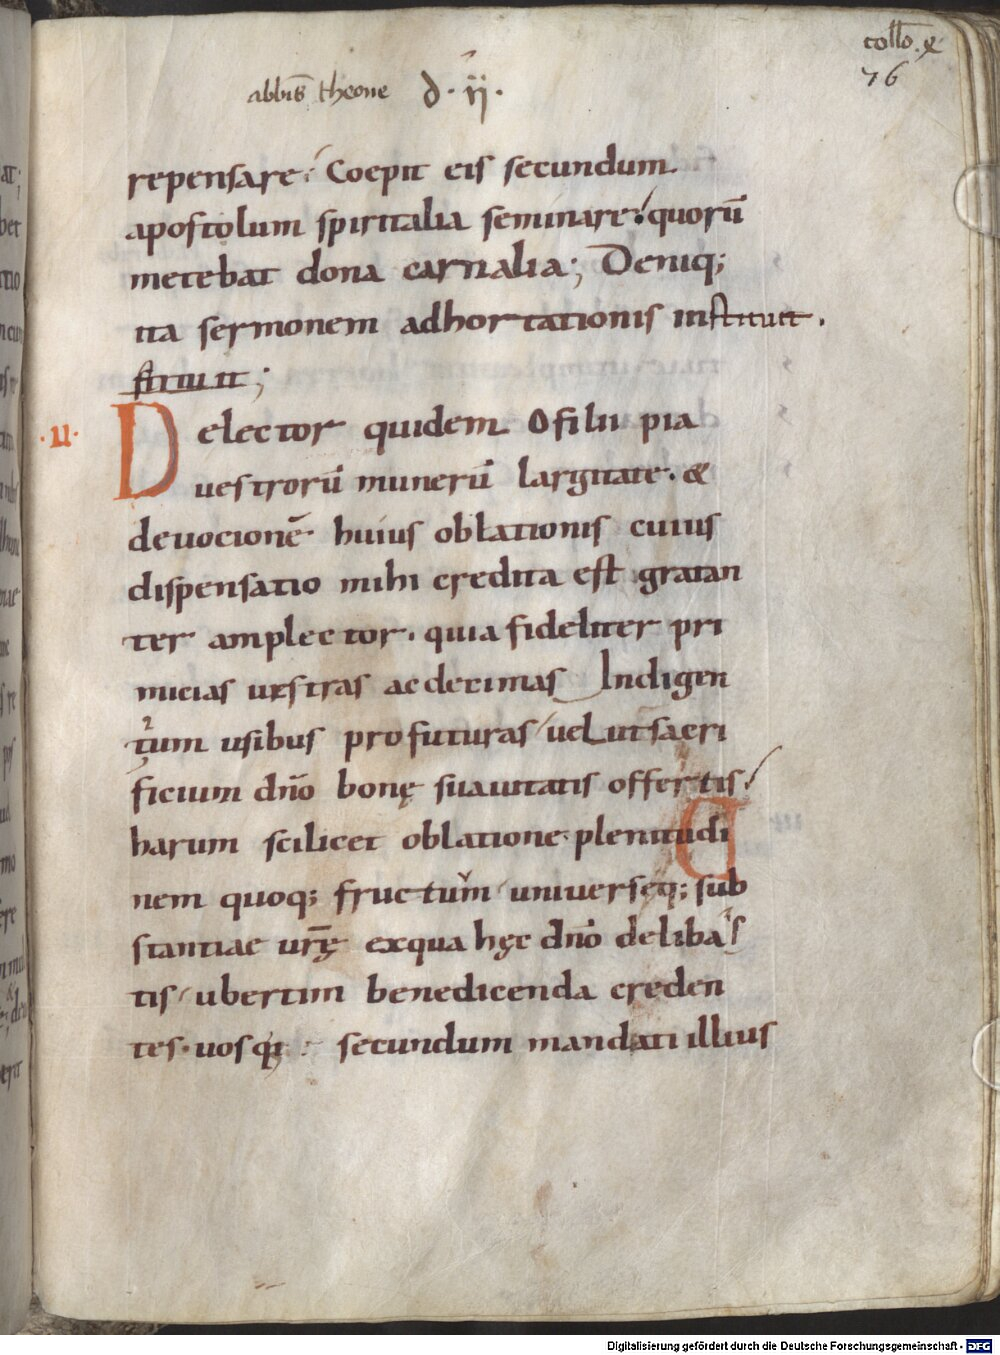 collo͞. x
76
abbis̄ theone d. ii.
repensare; Coepit eis secundum
apostolum spiritalia seminare. quorū
metebat dona carnalia; Deniq;
ita sermonem adhortationis instituit.
stituit;
.u. Delector quidem O filii pia
uestrorū munerū largitate. &
deuocionē huius oblationis cuius
dispensatio mihi credita est gratan
ter amplector. quia fideliter pri
micias uestras ac decimas Indigen
tium usibus profuturas uel ut sacri
ficium dn̄o bonę suauitatis offertis.
harum scilicet oblatione plenitudi
nem quoq; fructuum universęq; sub
stantiae urę̄ ex qua hęc dn̄o deliba
tis ubertim benedicenda creden
tes. uosq; secundum mandati illius
Digitalisierung gefördert durch die Deutsche Forschungsgemeinschaft - DFG